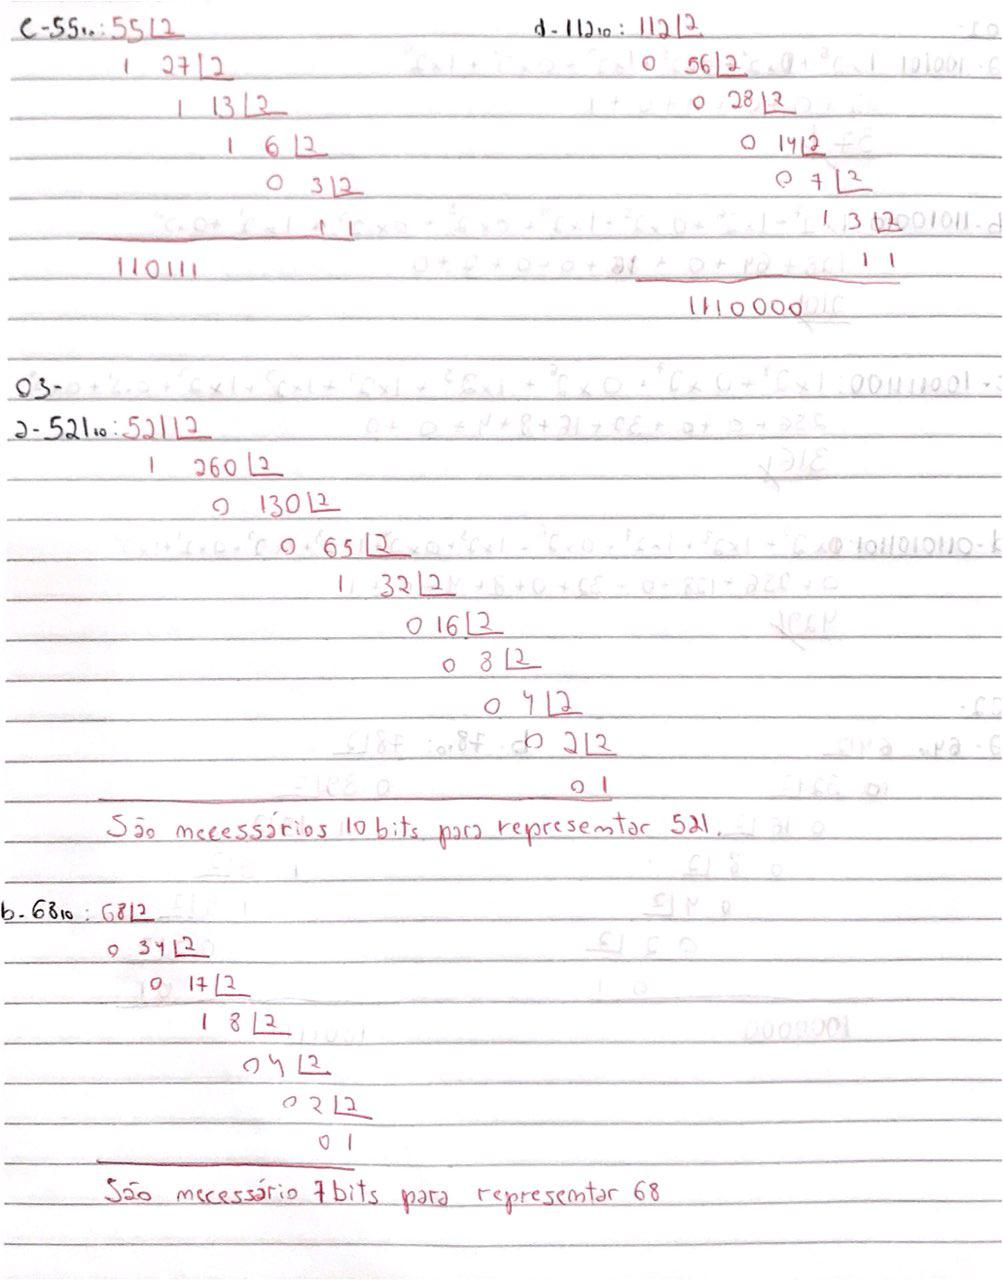 c-55₁₀: 55 2
1 27 2
1 13 2
1 6 2
0 3 2
1 1
110111
d-112₁₀: 112 2
0 56 2
0 28 2
0 14 2
0 7 2
1 3 2
1 1
1110000
03-
a-521₁₀: 521 2
1 260 2
0 130 2
0 65 2
1 32 2
0 16 2
0 8 2
0 4 2
0 2 2
0 1
São necessários 10 bits para representar 521.
b-68₁₀: 68 2
0 34 2
0 17 2
1 8 2
0 4 2
0 2 2
0 1
São necessário 7 bits para representar 68